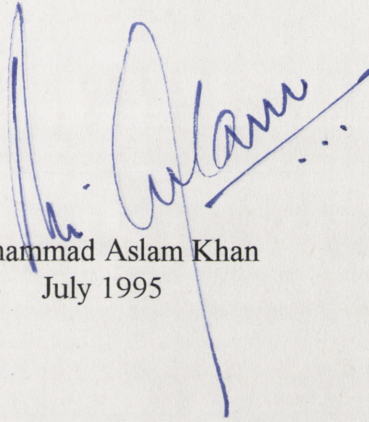 M. Aslam
hammad Aslam Khan
July 1995